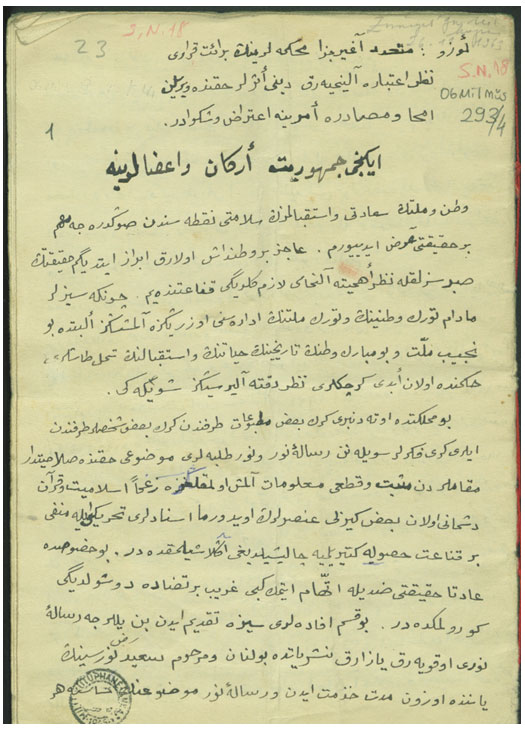 23
S.N. 18
S.N. 18
06 Mil Müs
293/4
لوزو : متعدد آغير جزا محكمه لرينك برائت قرارى
نظر اعتباره آلينميه رق دينى أثرلر حقنده ويريلن
امحا ومصادره أمرينه اعتراض وشكوادر.
١
ايكنجى جمهوريت أركان واعضالرينه
وطن وملتك سعادتى واستقبالمزك سلامتى نقطه سندن صوكدرجه مهم
بر حقيقتى عرض ايدييورم. عاجز بر وطنداش اولارق ابراز ايتديگم حقيقتك
صبرسزلقله نظر أهميته آلنماسى لازم گلديگى قناعتنده يم. چونكه سيزلر
مادام تورك وطنينك وتورك ملتنك اداره سنى اوزريكزه آلمشسكز ألبته بو
نجيب ملت وبو مبارك وطنك تاريخينك حياتنك واستقبالنك تمل طاشلرى
حكمنده اولان أبدى گرچكلرى نظر دقته آليرسيكز شويله كى.
بو مملكتده اوته دنبرى گرك بعض مطبوعات طرفندن گرك بعض شخصلر طرفندن
ايلرى گرى فكرلر سويله نن رسالۀ نور ونور طلبه لرى موضوعى حقنده صلاحيتدار
مقاملردن مثبت وقطعى معلومات آلمش اولمقلغمزه رغماً اسلاميت وقرآن
دشمانى اولان بعض گيزلى عنصرلرك اويدورما اسنادلرى تحريكيله منفى
بر قناعت حصوله گتيريلميه چاليشيلديغى آڭلاشيلمقده در. بو خصوصده
عادتا حقيقتى ضديله اتهام ايتمك كبى غريب بر تضاده دوشولديگى
گورولمكده در. بو قسم افاده لرى سيزه تقديم ايدن بن ييللرجه رسالۀ
نورى اوقويه رق يازارق نشرياتده بولنان ومرحوم سعيد نورسينك
ياننده اوزون مدت خدمت ايدن ورسالۀ نور موضوعنك هر